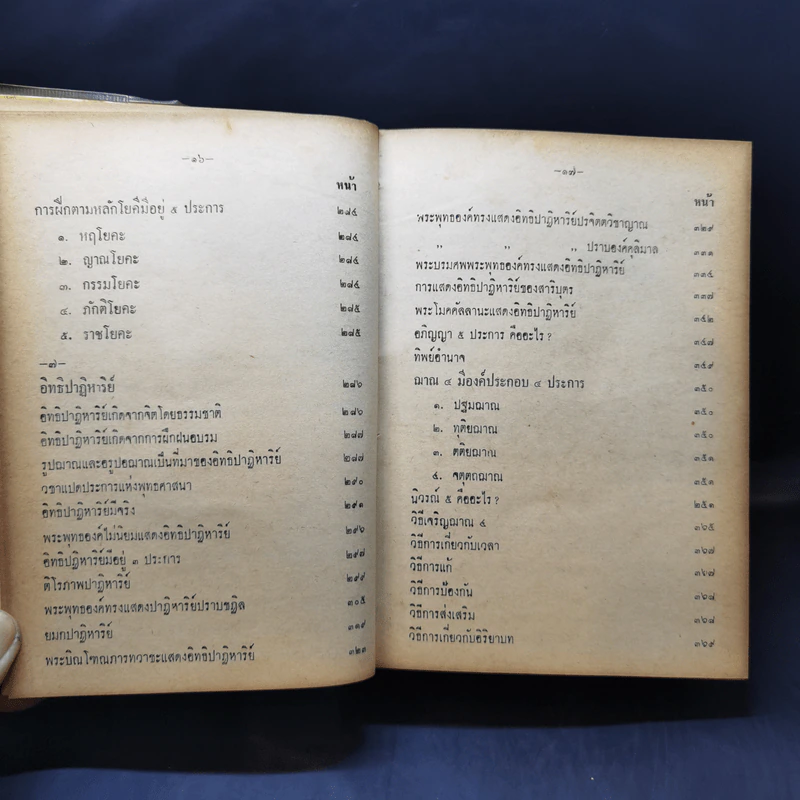 -๑๖-
หน้า
การฝึกตามหลักโยคีมีอยู่ ๕ ประการ ๒๘๔
๑. หฤโยคะ ๒๘๔
๒. ญาณโยคะ ๒๘๔
๓. กรรมโยคะ ๒๘๔
๔. ภักติโยคะ ๒๘๕
๕. ราชโยคะ ๒๘๕
-๗-
อิทธิปาฏิหาริย์ ๒๘๖
อิทธิปาฏิหาริย์เกิดจากจิตโดยธรรมชาติ ๒๘๖
อิทธิปาฏิหาริย์เกิดจากการฝึกฝนอบรม ๒๘๗
รูปฌาณและอรูปฌาณเป็นที่มาของอิทธิปาฏิหาริย์ ๒๘๗
วิชาแปดประการแห่งพุทธศาสนา ๒๙๐
อิทธิปาฏิหาริย์มีจริง ๒๙๑
พระพุทธองค์ไม่นิยมแสดงอิทธิปาฏิหาริย์ ๒๙๖
อิทธิปาฏิหาริย์มีอยู่ ๓ ประการ ๒๙๗
ติโรภาพปาฏิหาริย์ ๒๙๙
พระพุทธองค์ทรงแสดงปาฏิหาริย์ปราบชฎิล ๓๐๕
ยมกปาฏิหาริย์ ๓๑๙
พระบิณโฑณภารทวาชะแสดงอิทธิปาฏิหาริย์ ๓๒๓
-๑๗-
หน้า
พระพุทธองค์ทรงแสดงอิทธิปาฏิหาริย์ปรจิตตวิชาญาณ ๓๒๙
„ „ „ ปราบองค์คุลิมาล ๓๓๑
พระบรมศพพระพุทธองค์ทรงแสดงอิทธิปาฏิหาริย์ ๓๓๔
การแสดงอิทธิปาฏิหาริย์ของสาริบุตร ๓๓๗
พระโมคคัลลานะแสดงอิทธิปาฏิหาริย์ ๓๔๒
อภิญญา ๕ ประการ คืออะไร? ๓๔๗
ทิพย์อำนาจ ๓๔๙
ฌาณ ๔ มีองค์ประกอบ ๔ ประการ ๓๕๐
๑. ปฐมฌาณ ๓๕๐
๒. ทุติยฌาณ ๓๕๐
๓. ตติยฌาณ ๓๕๑
๔. จตุตถฌาณ ๓๕๑
นิวรณ์ ๕ คืออะไร? ๒๕๑
วิธีเจริญฌาณ ๔ ๓๖๕
วิธีการเกี่ยวกับเวลา ๓๖๗
วิธีการแก้ ๓๖๗
วิธีการป้องกัน ๓๖๘
วิธีการส่งเสริม ๓๖๘
วิธีการเกี่ยวกับอิริยาบท ๓๖๙